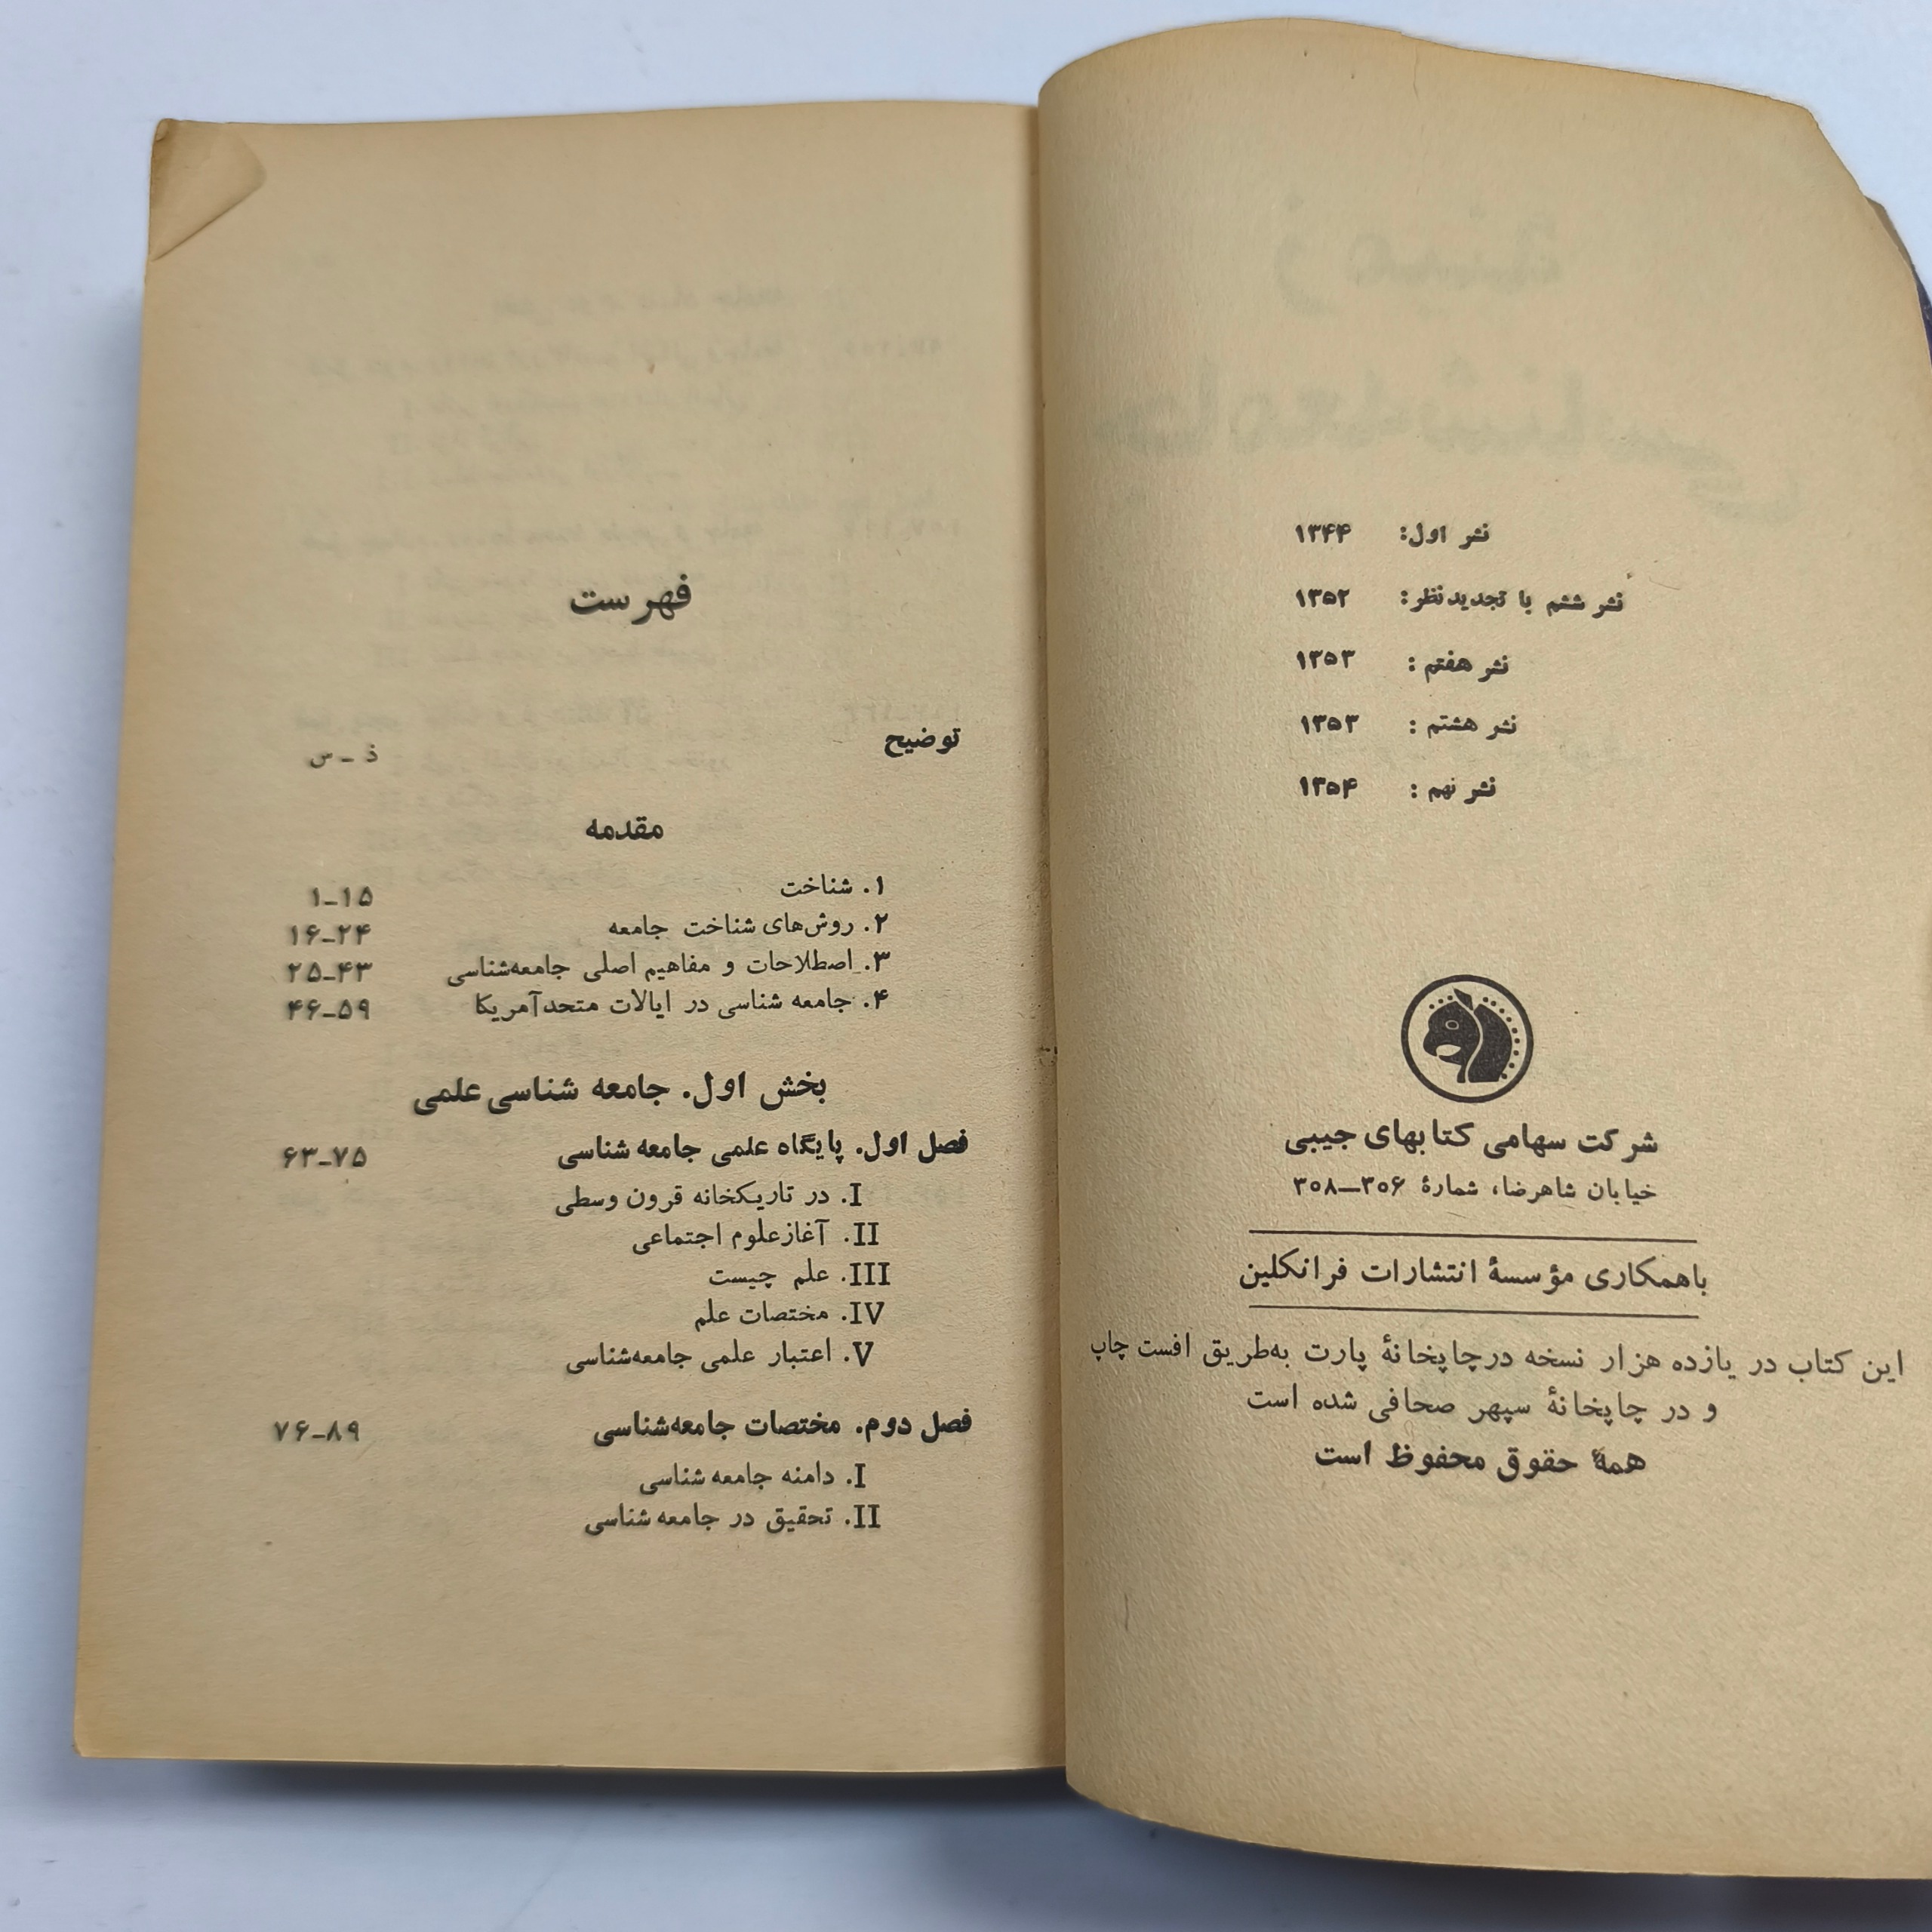 نشر اول: ۱۳۴۴
نشر ششم با تجدیدنظر: ۱۳۵۲
نشر هفتم: ۱۳۵۳
نشر هشتم: ۱۳۵۳
نشر نهم: ۱۳۵۴
شرکت سهامی کتابهای جیبی
خیابان شاهرضا، شمارهٔ ۳۰۶—۳۰۸
باهمکاری مؤسسهٔ انتشارات فرانکلین
این کتاب در یازده هزار نسخه درچاپخانهٔ پارت به‌طریق افست چاپ
و در چاپخانهٔ سپهر صحافی شده است
همهٔ حقوق محفوظ است
فهرست
توضیح ذ-س
مقدمه
۱. شناخت ۱-۱۵
۲. روش‌های شناخت جامعه ۱۶-۲۴
۳. اصطلاحات و مفاهیم اصلی جامعه‌شناسی ۲۵-۴۳
۴. جامعه شناسی در ایالات متحدآمریکا ۴۶-۵۹
بخش اول. جامعه شناسی علمی
فصل اول. پایگاه علمی جامعه شناسی ۶۳-۷۵
I. در تاریکخانه قرون وسطی
II. آغازعلوم اجتماعی
III. علم چیست
IV. مختصات علم
V. اعتبار علمی جامعه‌شناسی
فصل دوم. مختصات جامعه‌شناسی ۷۶-۸۹
I. دامنه جامعه شناسی
II. تحقیق در جامعه شناسی